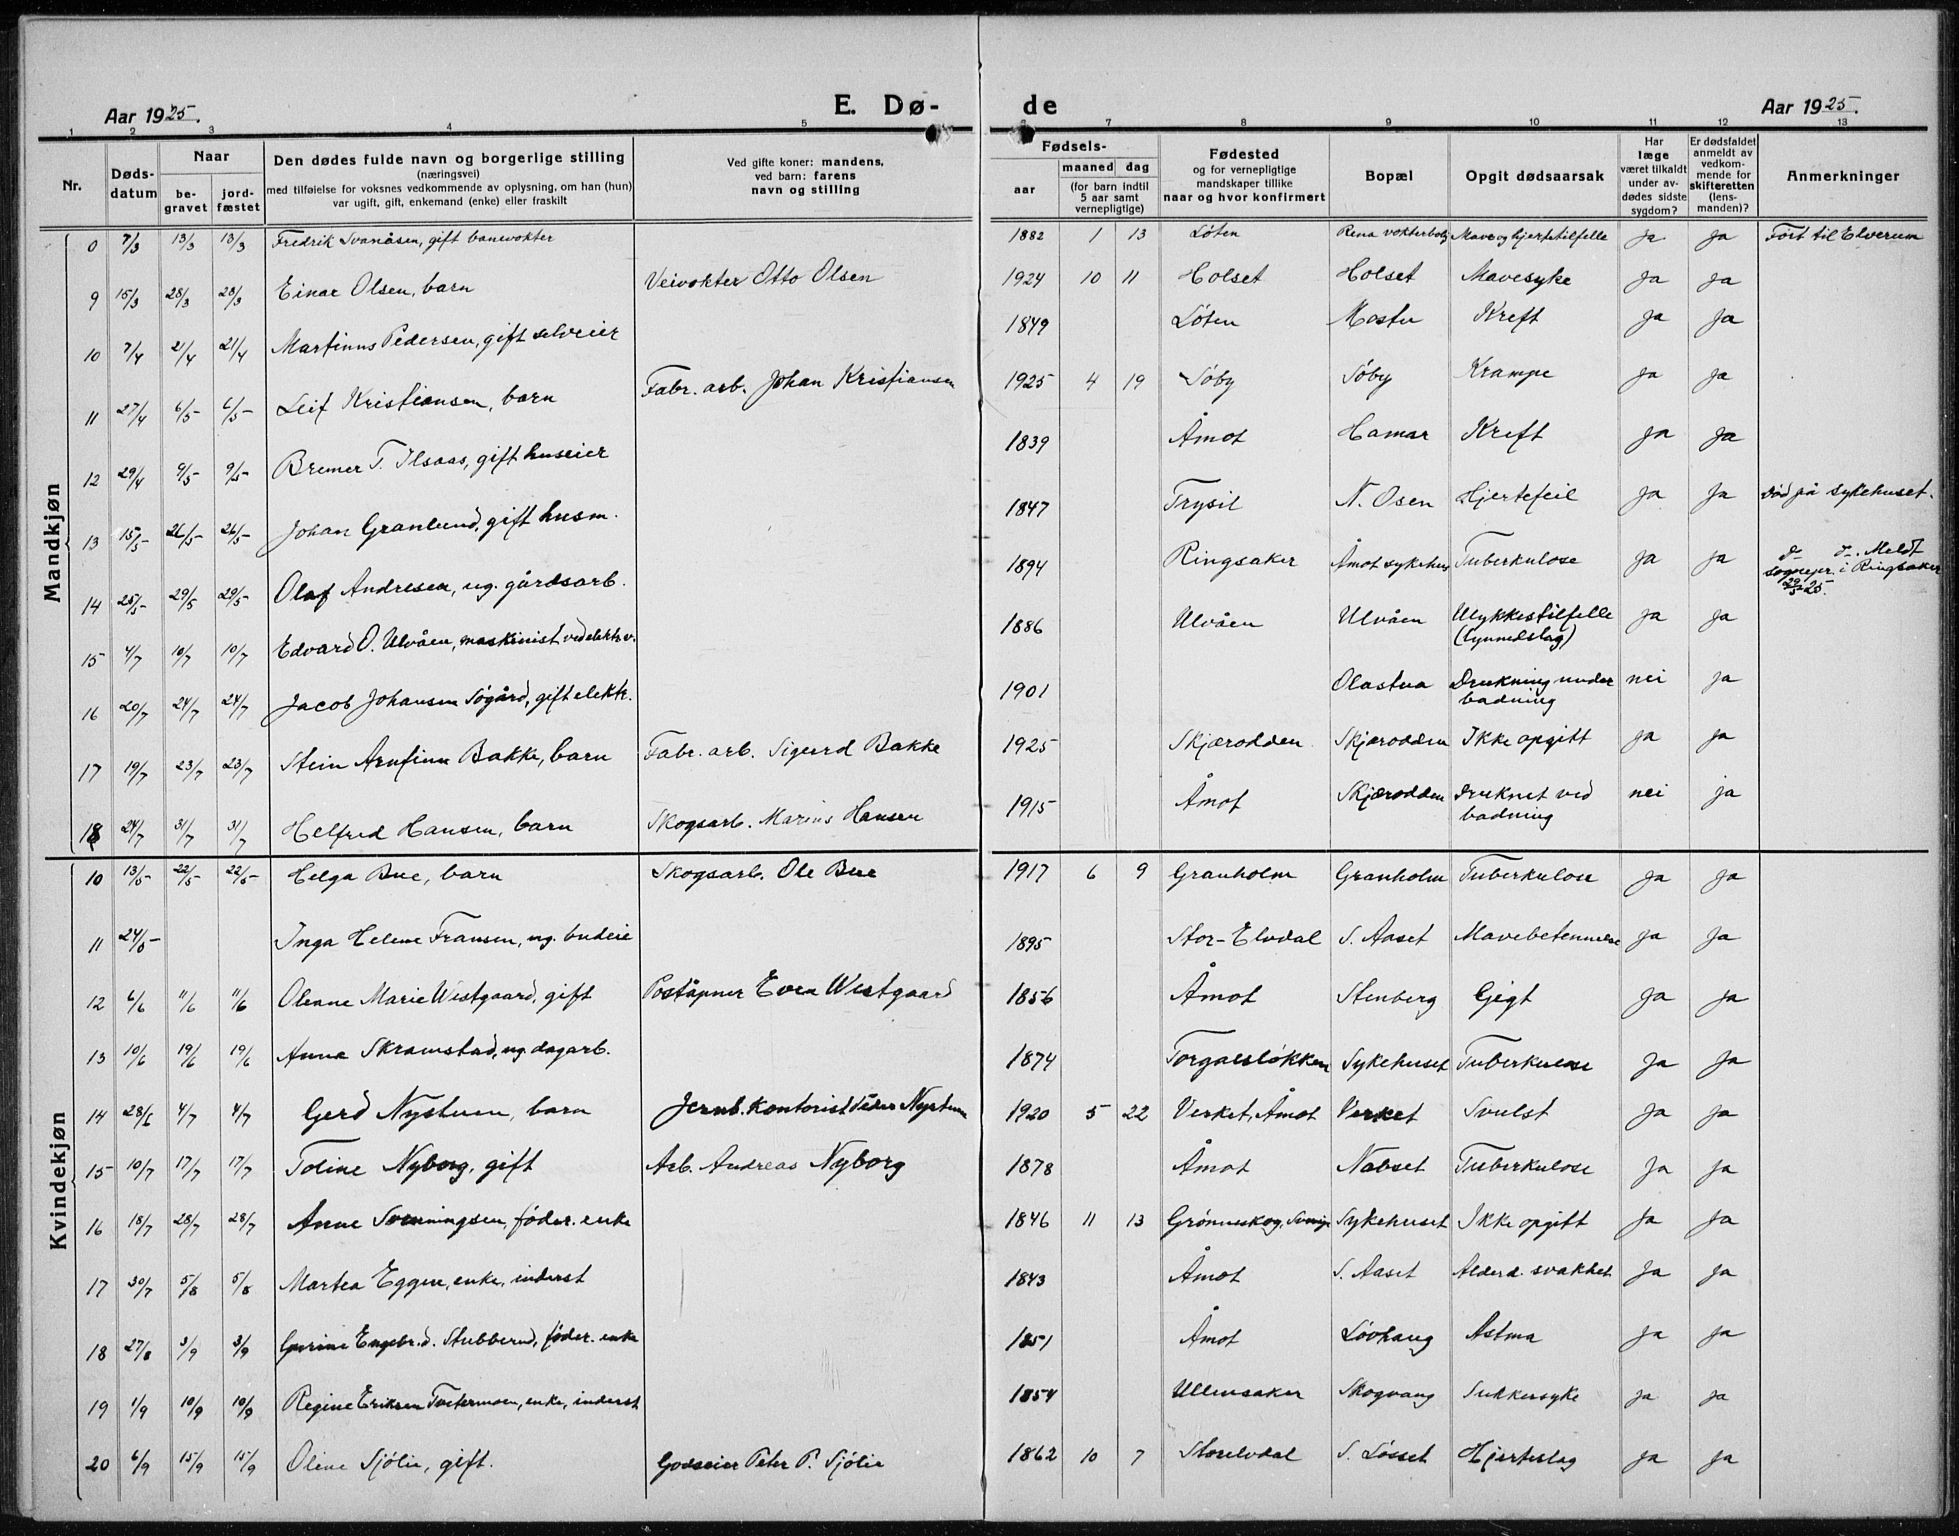 Aar 1925. E. Dø- de Aar 1925.
1 2 3 4 5 6 7 8 9 10 11 12 13
Nr. Døds-datum Naar be-gravet jord-fæstet Den dødes fulde navn og borgerlige stilling (næringsvei) med tilføielse for voksnes vedkommende av oplysning, om han (hun) var ugift, gift, enkemand (enke) eller fraskilt Ved gifte koner: mandens, ved barn: farens navn og stilling Fødsels- aar maaned dag (for barn indtil 5 aar samt vernepligtige) Fødested og for vernepligtige mandskaper tillike naar og hvor konfirmert Bopæl Opgit dødsaarsak Har læge været tilkaldt under av-dødes sidste sygdom? Er dødsfaldet anmeldt av vedkom-mende for skifteretten (lens-manden)? Anmerkninger
Mandkjøn
0 7/3 13/3 13/3 Fredrik Svanåsen, gift banevokter 1882 1 13 Løten Rena vokterbolig Mave og hjertetilfelle Ja Ja Ført til Elverum
9 15/3 28/3 28/3 Einar Olsen, barn Veivokter Otto Olsen 1924 10 11 Holset Holset Mavesyke Ja Ja
10 7/4 21/4 21/4 Martinus Pedersen, gift selveier 1849 Løten Mostu Kreft Ja Ja
11 27/4 6/5 6/5 Leif Kristiansen, barn Fabr. arb. Johan Kristiansen 1925 4 19 Søby Søby Krampe Ja Ja
12 29/4 9/5 9/5 Bremer T. Ilsaas, gift huseier 1839 Åmot Hamar Kreft Ja Ja
13 15/5 26/5 26/5 Johan Granlund, gift husm. 1847 Trysil N. Osen Hjertefeil Ja Ja Død på sykehuset.
14 25/5 29/5 29/5 Olaf Andresen, ug. gårdsarb. 1894 Ringsaker Åmot sykehus Tuberkulose Ja Ja d- d-. Meldt sognepr. i Ringsaker 29/5 25.
15 4/7 10/7 10/7 Edvard O. Ulvåen, maskinist ved elektr.v. 1886 Ulvåen Ulvåen Ulykkestilfelle (lynnedslag) Ja Ja
16 20/7 24/7 24/7 Jacob Johansen Søgård, gift elektr. 1901 Olastua Drukning under badning nei Ja
17 19/7 23/7 23/7 Stein Arnfinn Bakke, barn Fabr. arb. Sigurd Bakke 1925 Skjærodden Skjærodden Ikke opgitt Ja Ja
18 24/7 31/7 31/7 Helfred Hansen, barn Skogsarb. Marius Hansen 1915 Åmot Skjærodden Druknet ved badning nei ja
Kvindekjøn
10 13/5 22/5 22/5 Helga Bue, barn Skogsarb. Ole Bue 1917 6 9 Granholm Granholm Tuberkulose Ja Ja
11 24/5 Inga Helene Fransen, ug. budeie 1895 Stor-Elvdal S. Aaset Mavebetennelse Ja Ja
12 6/6 11/6 11/6 Oleane Marie Westgaard, gift Poståpner Even Westgaard 1856 Åmot Stenberg Gigt Ja Ja
13 10/6 19/6 19/6 Anna Skramstad, ug. dagarb. 1874 Torgalsløkken Sykehuset Tuberkulose Ja Ja
14 28/6 4/7 4/7 Gerd Nystuen, barn Jernb. kontorist Peder Nystuen 1920 5 22 Verket, Åmot Verket Svulst Ja Ja
15 10/7 17/7 17/7 Toline Nyborg, gift Arb. Andreas Nyborg 1878 Åmot Nabset Tuberkulose Ja Ja
16 18/7 28/7 28/7 Anne Svenningsen, føder. enke 1846 11 13 Grønneskog, Sverige Sykehuset Ikke opgitt Ja Ja
17 30/7 5/8 5/8 Martea Eggen, enke, inderst 1843 Åmot S. Aaset Alderd. svakhet Ja Ja
18 27/8 3/9 3/9 Gurine Engebr.d. Stubberud, føder. enke 1851 Åmot Løvhaug Astma Ja Ja
19 1/9 10/9 10/9 Regine Eriksen Tvetermoen, enke, inderst 1854 Ullensaker Skogvang Sukkersyke Ja Ja
20 6/9 15/9 15/9 Oline Sjølie, gift. Godseier Peter P. Sjølie 1862 10 7 Storelvdal S. Løsset Hjerteslag Ja Ja